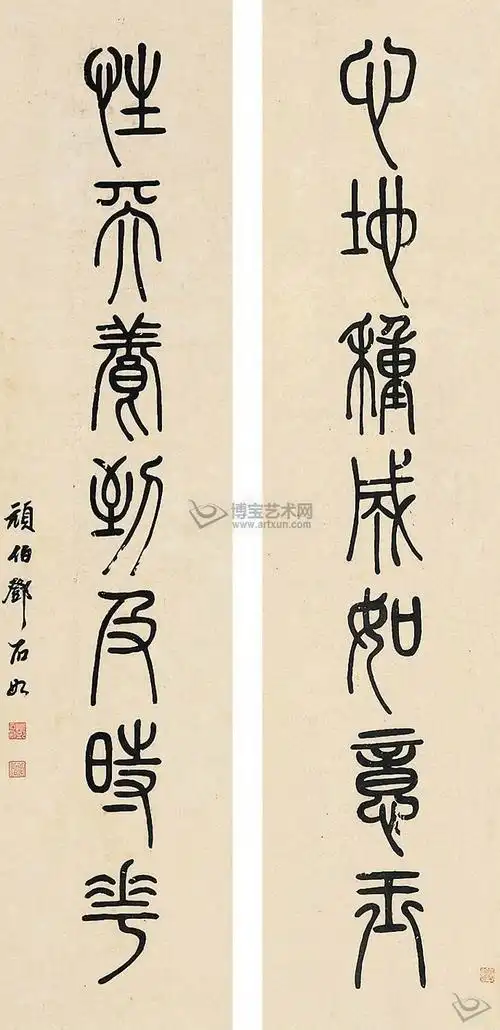 心地種成如意玉
性天養到及時花
頑伯鄧石如
博宝艺术网
www.artxun.com